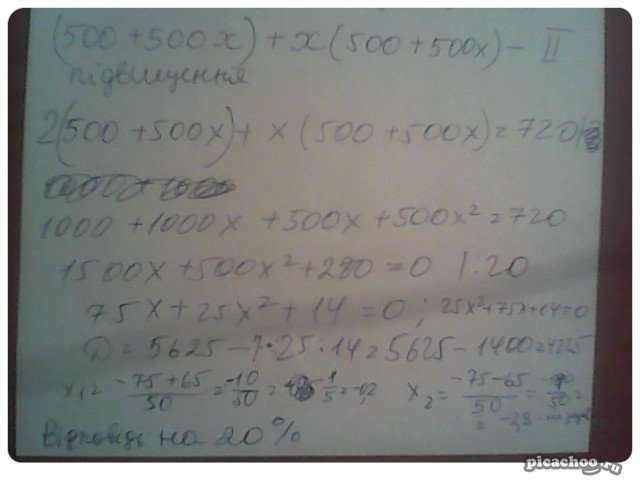 (500 + 500x) + x (500 + 500x) - II
підвищення
2(500 + 500x) + x (500 + 500x) = 720
1000 + 1000x + 500x + 500x² = 720
1500x + 500x² + 280 = 0 | :20
75x + 25x² + 14 = 0 ; 25x²+75x+14=0
D = 5625 - 4·25·14 = 5625 - 1400 = 4225
x₁ = (-75+65)/50 = -10/50 = -1/5 = -0,2 x₂ = (-75-65)/50 =
= -2,8 -
Відповідь на 20%
picachoo.ru